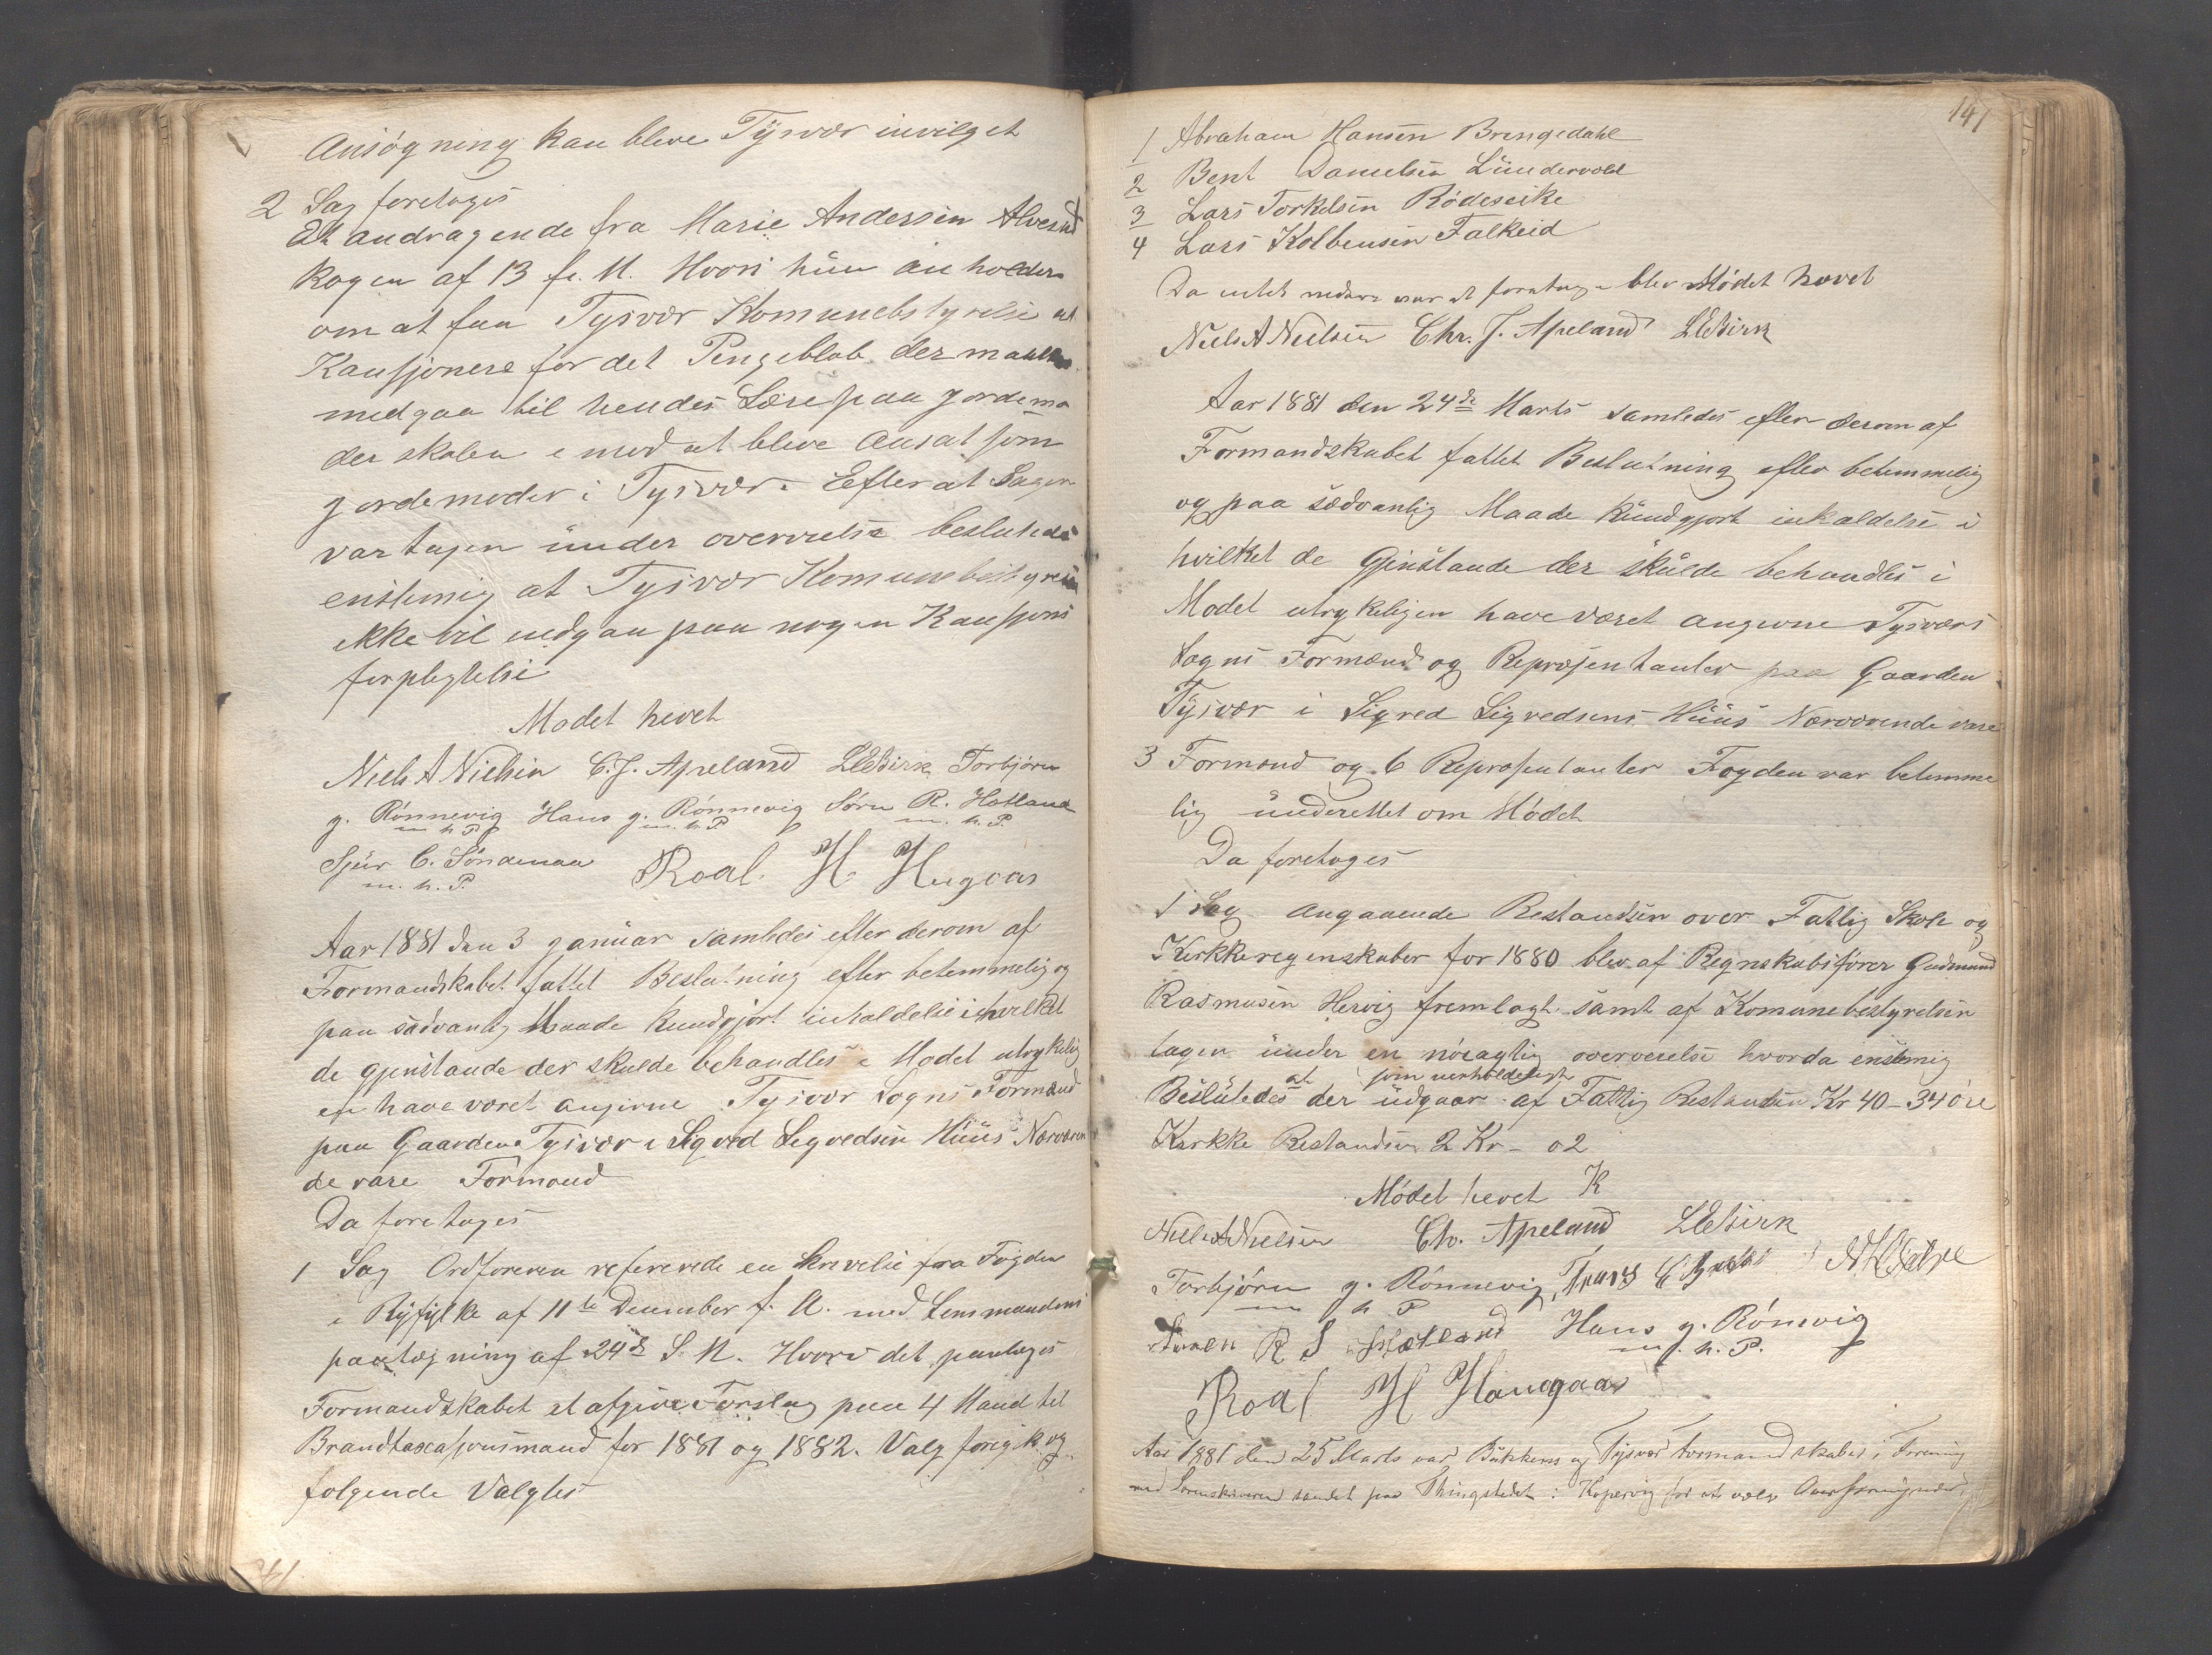 Ansøgning kan blive Tysvær invilget
2 Sag foretoges
Et andragende fra Marie Andersen
af 13 f. M. Hvori hun anholder
om at faa Tysvær Komunebstyrelse at
Kausjonere for det Pengebløb der maatte
medgaa til hendes Lære paa jordemo
der skolen i mod at blive Ansat som
jordemoder i Tysvær. Efter at Sagen
var tagen under overveielse besluttedes
enstemig at Tysvær Komunebestyrelse
ikke vil indgaa paa nogen Kausjons
forplegtelse
Mødet hevet
Niels A Nielsen C. J. Apeland L E Birk Torbjørn
g. Rönnevig Hans g. Rönnevig Sørn R. Hetland
m h P m. h. P m. h. P.
Sjur C. Söndenaa Roal. H Hugaas
m. h. P.
Aar 1881 den 3 januar samledes efter derom af
Formandskabet fattet Beslutning efter betemmelig og
paa sædvanlig Maade kundgjort inkaldelse i hvilket
de gjenstande der skulde behandles i Mødet utrykelig
en have været angivne Tysvær Sogns Formænd
paa Gaarden Tysvær i Sigved Sigvedsen Hüüs Nærværen
de vare Formænd
Da foretoges
1 Sag Ordføreren refererede en Skrivelse fra Fogden
i Ryfylke af 11te December f. A. med Lensmandens
paategning af 24de S. M. Hvori det paalæges
Formandskabet at afgive Forslag paa 4 Mand til
Brandtaxasjonsmænd for 1881 og 1882. Valg foregik og
følgende Valgtes
141
1 Abraham Hansen Bringedahl
2 Bent Danielsen Lündervold
3 Lars Torkelsen Rödeseike
4 Lars Kolbensen Falkeid
Da intet videre var at foretage blev Mødet hævet
Niels A Nielsen Chr. J. Apeland L E Birk
Aar 1881 den 24de Marts samledes efter derom af
Formandskabet fattet Beslutning efter betemmelig
og paa sædvanlig Maade kundgjort inkaldelse i
hvilket de Gjenstande der skulde behandles i
Mødet utrykeligen have været angivne Tysværs
Sogns Formænd og Repræsentanter paa Gaarden
Tysvær i Sigved Sigvedsens Hüüs Nærværende vare
3 Formænd og 6 Repræsentanter Fogden var betemme
lig ünderettet om Mødet
Da foretoges
1 Sag angaaende Restandsen over Fattig Skole og
Kirkkeregenskaber for 1880 blev af Regnskabsfører Gudmund
Rasmusen Hervig fremlagt samt af Komunebestyrelsen
tagen ünder en nöiagtig overveielse hvorda enstemig
Beslütedes at der som uerholdeligt üdgaar af Fattig Restandsen Kr 40 - 34 øre
Kirkke Restandsen 2 Kr - 02
Mødet hevet K
Niels A Nielsen Chr. Apeland L E Birk
Torbjörn g. Rönnevig
m h P
Sören R S Hetland Hans g. Rönevig
m. h. P.
Roal H Haugaas
Aar 1881 den 25 Marts var Bukkens og Tysvær Formandskaber i Forening
med Sorenskriveren samlet paa Thingstedet i Kopervig for at vælge